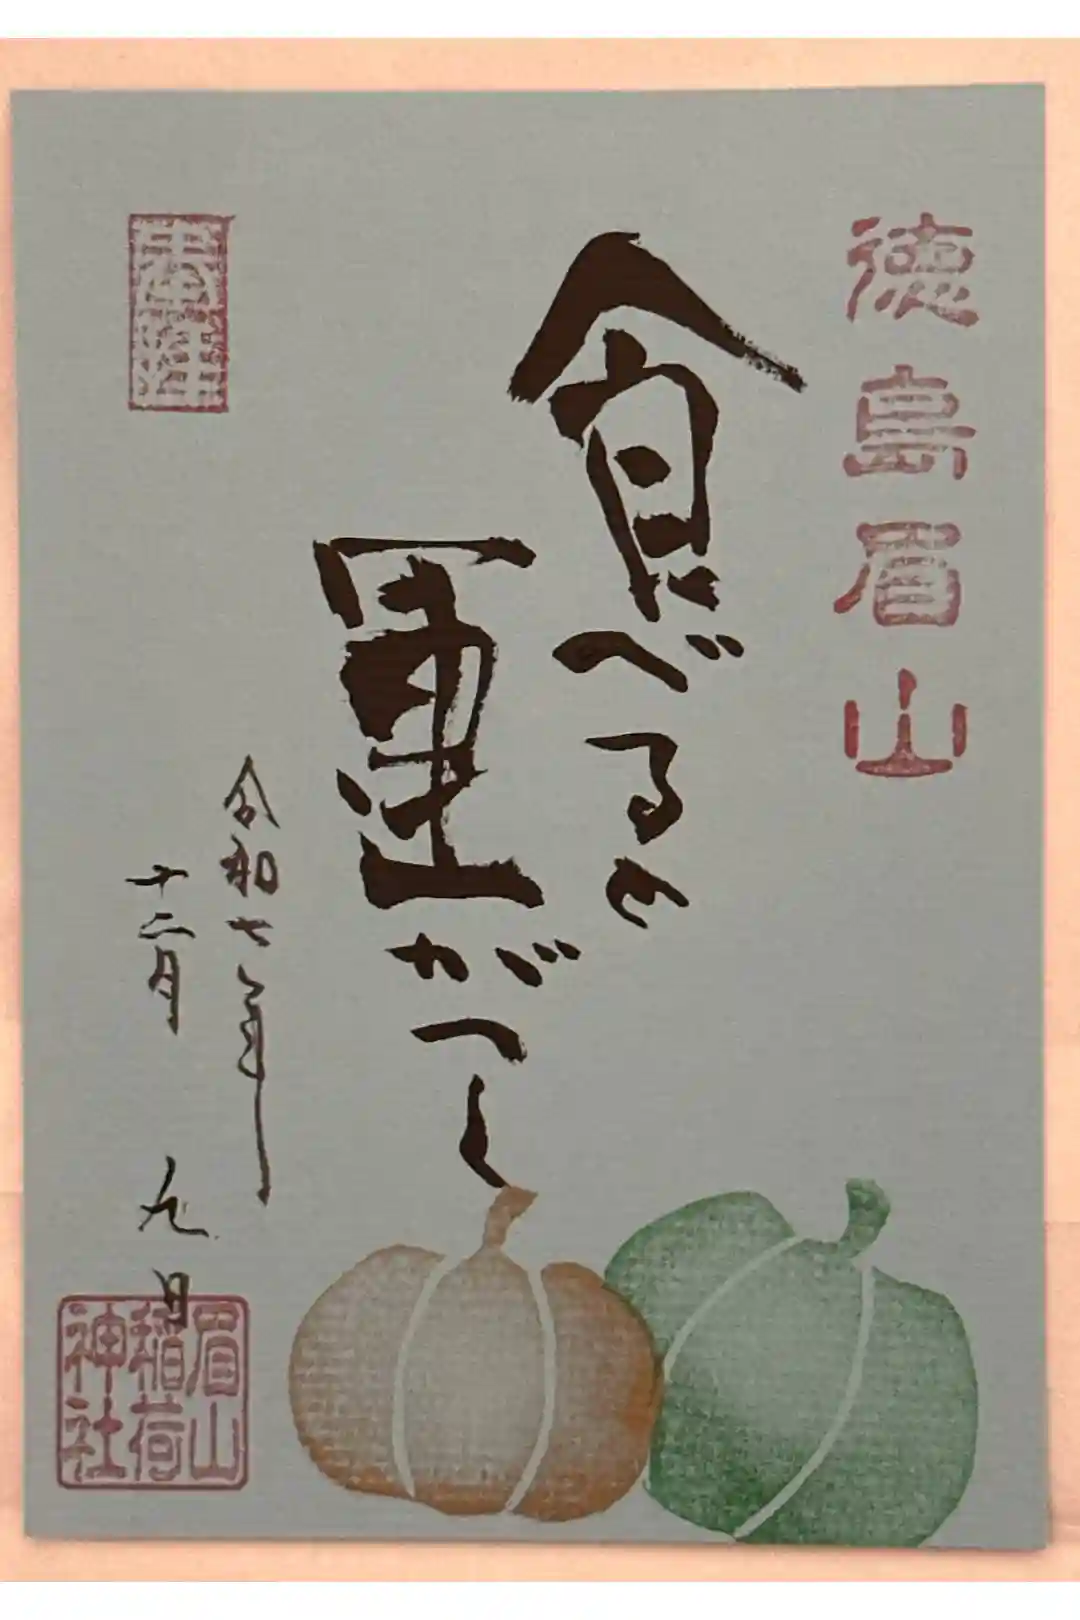 徳島眉山
食べると
運がつく
令和七年
十二月 九日
眉山
稲荷
神社